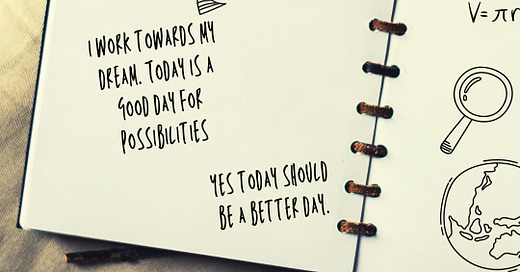 I WORK TOWARDS MY
DREAM. TODAY IS A
GOOD DAY FOR
POSSIBILITIES
YES TODAY SHOULD
BE A BETTER DAY.
V=πr